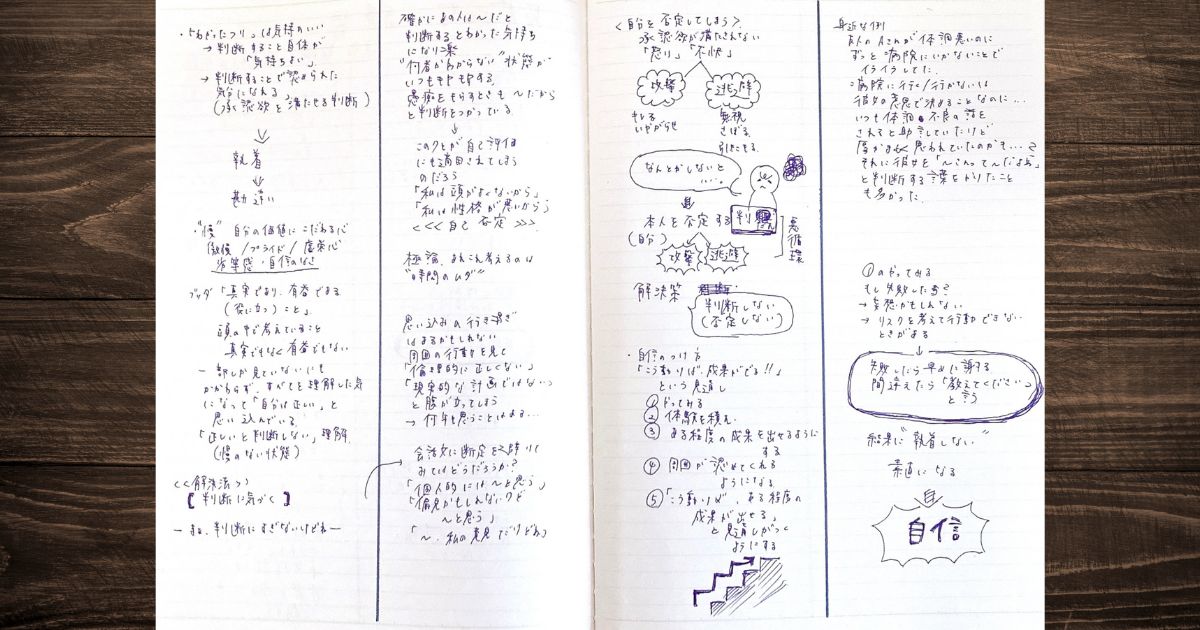 ・「わかったつもり」は気持のいい
→ 判断すること自体が
「気持ちよい」
→ 判断することで認められた
気分になれる
(承認欲を満たせる判断)
執着
勘違い
・"慢" 自分の価値にこだわる心
傲慢/プライド/虚栄心
劣等感・自信のなさ
ブッダ「真実であり、有益である
(役に立つ)こと」
頭の中で考えていること
真実でもなく有益でもない
一部しか見ていないにも
かかわらず、すべてを理解した気
になって「自分は正しい」と
思い込んでいる
「正しいと判断しない」理解
(慢のない状態)
<<解決法>>
[判断に気づく]
― まぁ、判断にすぎないけどね ―
確かにあの人は〜だと
判断するとわかった気持ち
になり楽
"何者かわからない"状態が
いつもモヤモヤする
愚痴をもらすときも〜だから
と判断をつかっている
↓
このクセが自己評価
にも適用されてしまう
のだろう
「私は頭がよくないから」
「私は性格が悪いから」
<<<自己否定>>>
極論、あれこれ考えるのは
"時間のムダ"
思い込みの行き過ぎ
はあるかもしれない
周囲の行動を見て
「倫理的に正しくない」
「現実的な計画ではない」
と腹が立ってしまう
→ 何年も思うことはある…
会話文に断定を辞めて
みてはどうだろうか?
「個人的には〜と思う」
「偏見かもしれないケド
〜と思う」
「〜、私の意見だけどね」
<自分を否定してしまう>
承認欲が満たされない
「怒り」「不快」
攻撃
逃避
キレる
いやがらせ
無視
さぼる
引きこもる
なんとかしないと
……
本人を否定する判断
(自分)
攻撃
逃避
悪循環
解決策
判断しない
(否定しない)
・自信のつけ方
「こう動けば、成果がでる!!」
という見通し
① やってみる
② 体験を積む
③ ある程度の成果を出せるように
する
④ 周囲が認めてくれる
ようになる
⑤ 「こう動けば、ある程度の
成果が出せる」
と見通しがつく
ようにする
身近な例
友人のAさんが体調悪いのに
ずっと病院にいかないことで
イライラしてた
病院に行く/行かないは
彼女の意思で決めることなのに…
いつも体調不良の話を
されると助言していたけど
それに彼女を「〜こわって〜だよね」
と判断する言葉をかけたこと
も多かった。
①のやってみる
もし失敗したら?
→ 妄想かもしれない
→ リスクを考えて行動できない
ときがある
↓
失敗したら早めに謝る
間違えたら「教えてください」
と言う
結果に"執着しない"
素直になる
自信